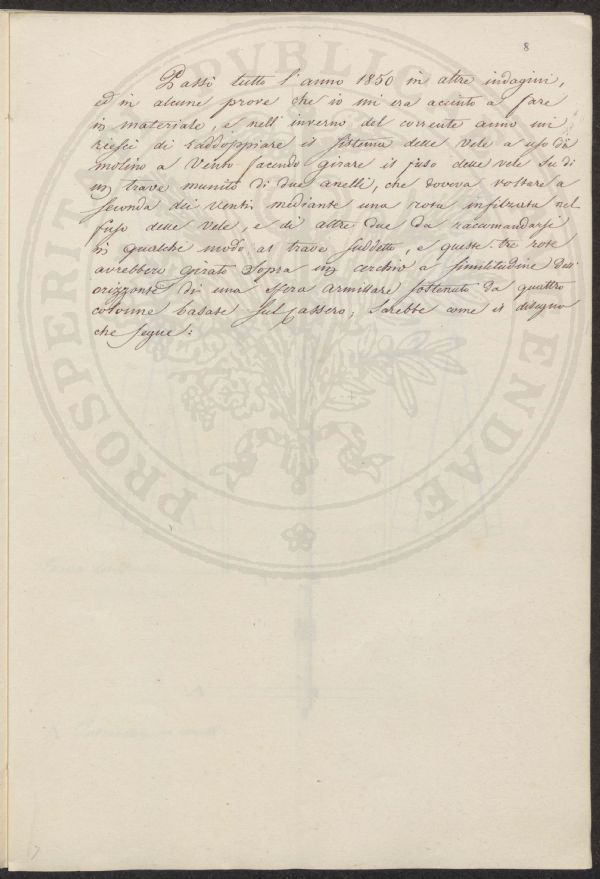 8
Passò tutto l'anno 1850 in altre indagini,
ed in alcune prove che io mi era accinto a fare
in materiale, e nell'inverno del corrente anno mi
riescì di raddoppiare il sistema delle vele a uso di
molino a vento facendo girare il fuso delle vele su di
un trave munito di due anelli, che doveva voltare a
seconda dei venti mediante una rota infilzata nel
fuso delle vele, e di altre due da racumandarsi
in qualche modo al trave suddetto, e queste tre rote
avrebbero girato sopra un cerchio a similitudine dell'
orizzonte di una sfera armillare sostenuto da quattro
colonne basate sul cassero, sarebbe come il disegno
che segue:
PVBLICAE
PROSPERITATI
ENDAE